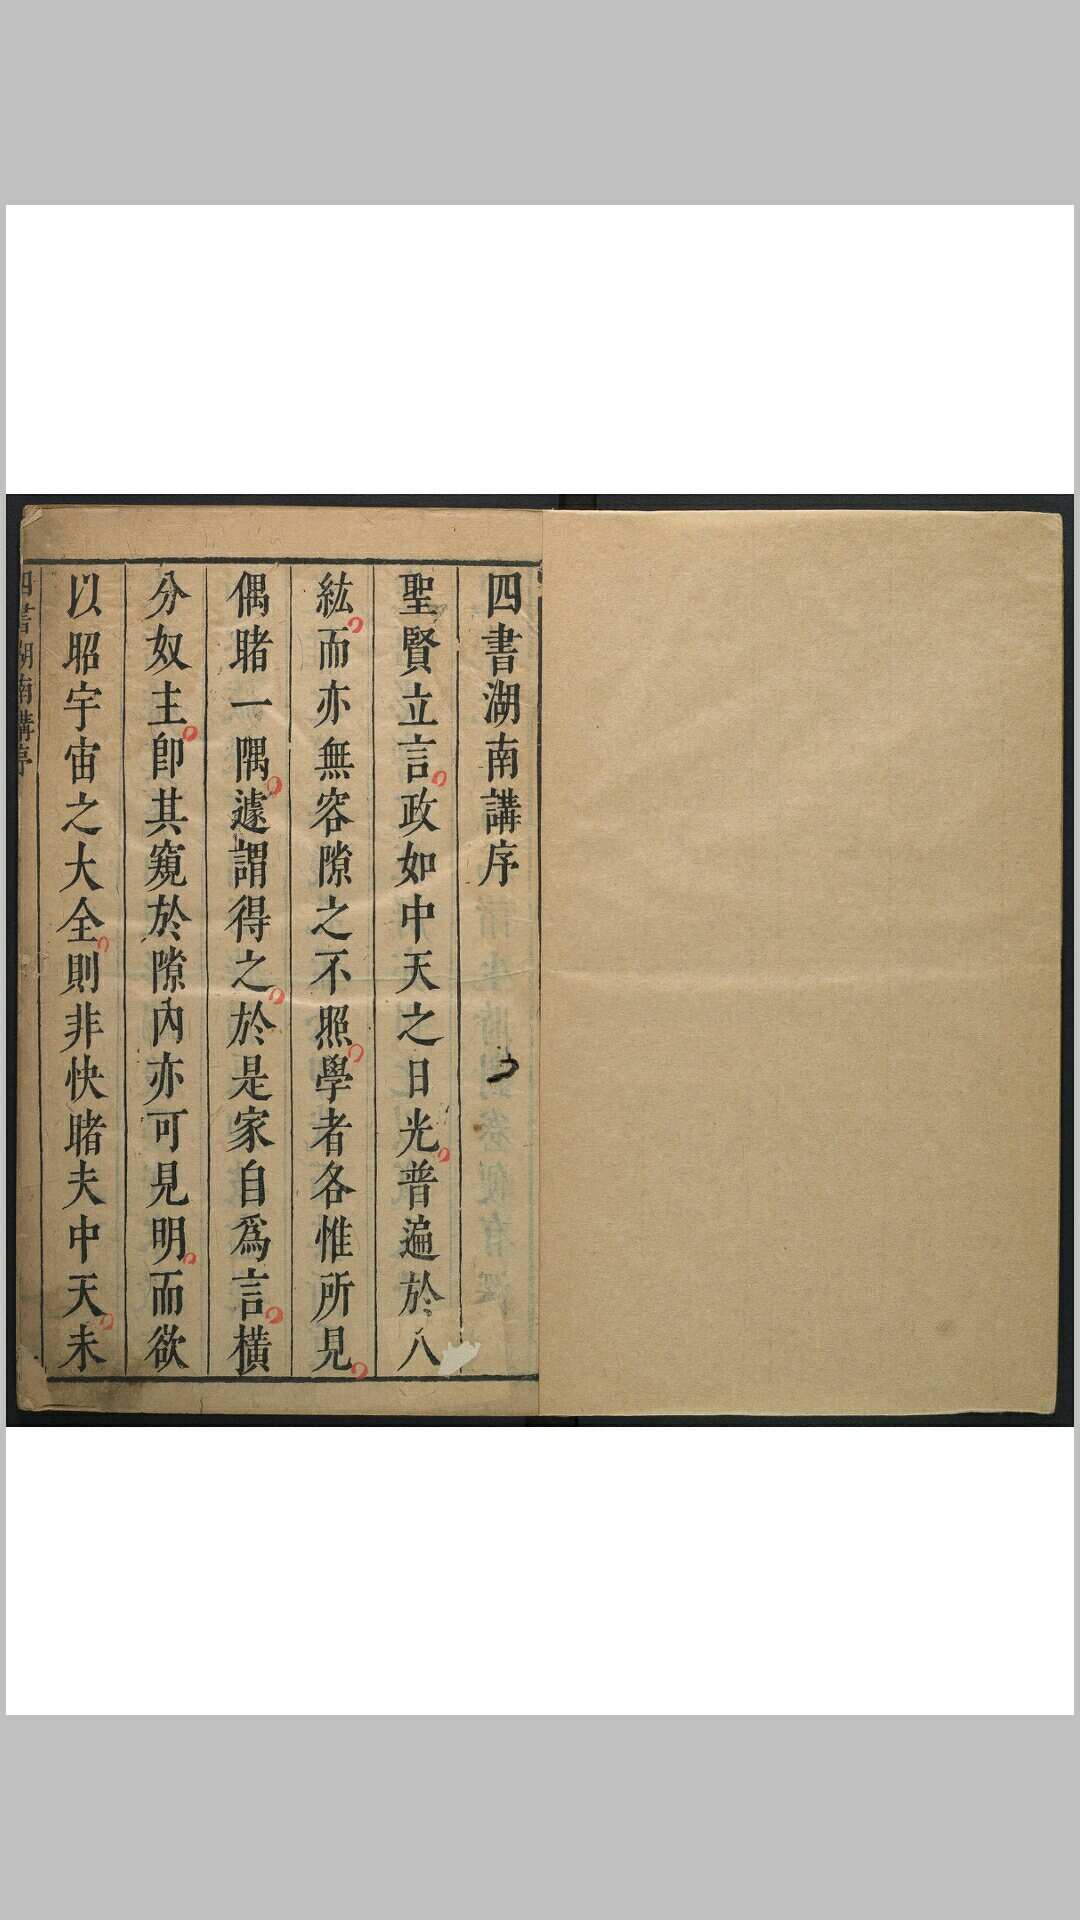 四書湖南講序
聖賢立言政如中天之日光普遍於八
紘而亦無容隙之不照學者各惟所見
偶睹一隅遽謂得之於是家自為言橫
分奴主卽其窺於隙內亦可見明而欲
以昭宇宙之大全則非快睹夫中天未
四書湖南講序